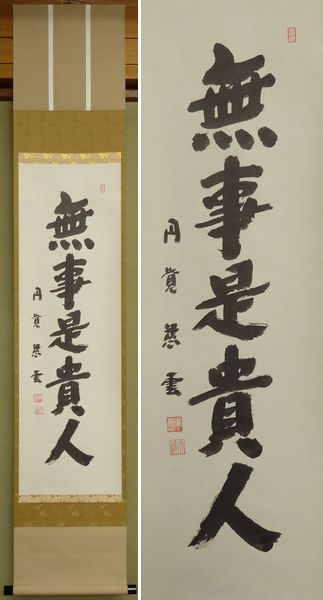 無事是貴人
円覚慈雲
無事是貴人
円覚慈雲